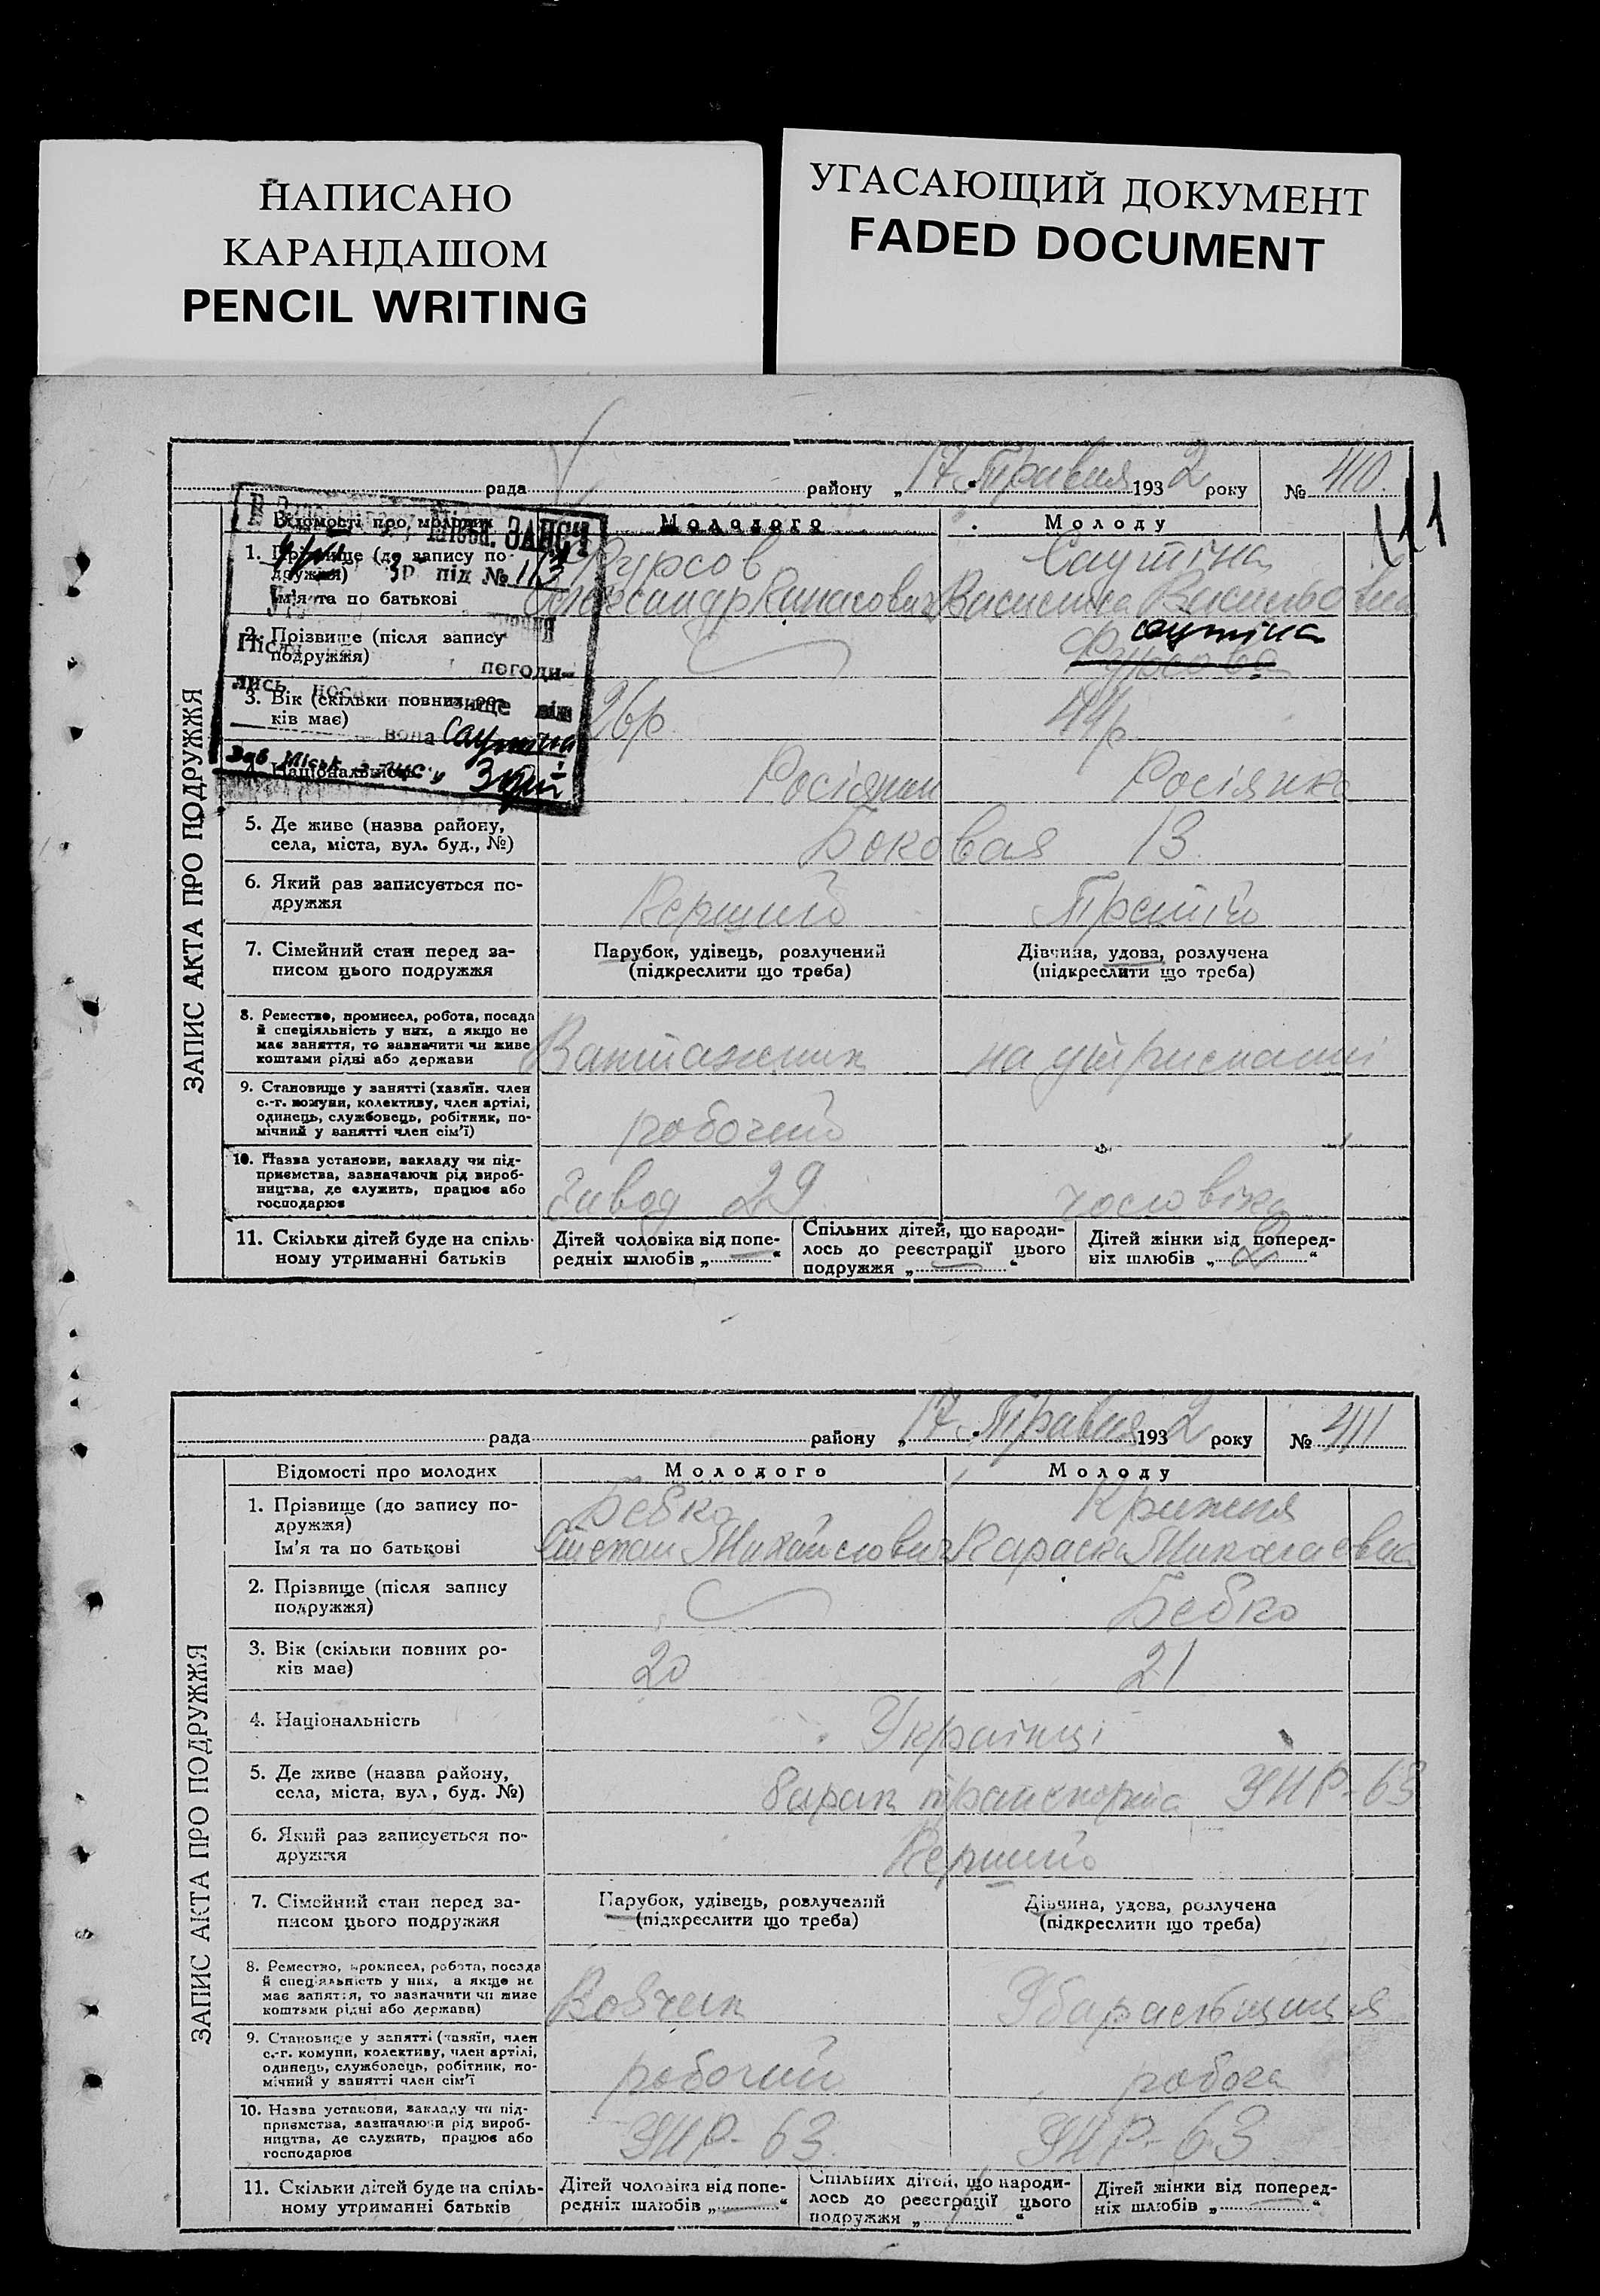 НАПИСАНО
КАРАНДАШОМ
PENCIL WRITING
УГАСАЮЩИЙ ДОКУМЕНТ
FADED DOCUMENT
рада районy „17 Травня 1932 року № 410.
Відомості про молодих Молодого Молоду
ЗАПИС АКТА ПРО ПОДРУЖЖЯ
1. Прізвище (до запису подружжя) Фурсов Саутіна
Ім'я та по батькові Олександр Василиса Васильовна
2. Прізвище (після запису подружжя) Фурсова Саутіна
ЗАПСІ
під № 113
погоди-
лись
вона Саутіна
3. Вік (скільки повних ро-
ків має) 26р. 44р.
4. Національність Росіянин Росіянка
5. Де живе (назва району,
села, міста, вул. буд., №) Боковая 13.
6. Який раз записується по-
дружжя Перший Третій
7. Сімейний стан перед за- Парубок, удівець, розлучений Дівчина, удова, розлучена
писом цього подружжя (підкреслити що треба) (підкреслити що треба)
8. Ремество, промисел, робота, посада
й спеціяльність у них, а якщо не
має заняття, то зазначити чи живе
коштами рідні або держави Вантажник на утриманні
9. Становище у занятті (хазяїн. член
с.-г. комуни, колективу, член артілі,
одинець, службовець, робітник, по-
мічний у занятті член сім'ї) робочий
10. Назва установи, закладу чи під-
приємства, зазначаючи рід вироб-
ництва, де служить, працює або
господарює Завод 29 чоловіка
11. Скільки дітей буде на спіль-
ному утриманні батьків
Дітей чоловіка від попе-
редніх шлюбів „—“
Спільних дітей, що народи-
лось до реєстрації цього
подружжя „—“
Дітей жінки від поперед-
ніх шлюбів „2“
рада району „17 Травня 1932 року № 411
Відомості про молодих Молодого Молоду
ЗАПИС АКТА ПРО ПОДРУЖЖЯ
1. Прізвище (до запису по-
дружжя) Бебко
Ім'я та по батькові Степан Михайлович Параска Миколаевна
2. Прізвище (після запису
подружжя) Бебко
3. Вік (скільки повних ро-
ків має) 20 21
4. Національність Українці
5. Де живе (назва району,
села, міста, вул, буд. №) барак транспорта УНР-63
6. Який раз записується по-
дружжя Перший
7. Сімейний стан перед за- Парубок, удівець, розлучений Дівчина, удова, розлучена
писом цього подружжя (підкреслити що треба) (підкреслити що треба)
8. Ремество, промисел, робота, посада
й спеціяльність у них, а якщо не
має заняття, то зазначити чи живе
коштами рідні або держави)
9. Становище у занятті (хазяїн, член
с.-г. комуни, колективу, член артілі,
одинець, службовець, робітник, по-
мічний у занятті член сім'ї робочий робоча
10. Назва установи, закладу чи під-
приємства, зазначаючи рід вироб-
ництва, де служить, працює або
господарює УНР-63. УНР-63
11. Скільки дітей буде на спіль-
ному утриманні батьків
Дітей чоловіка від попе-
редніх шлюбів „—“
Спільних дітей, що народи-
лось до реєстрації цього
подружжя „“
Дітей жінки від поперед-
ніх шлюбів „—“